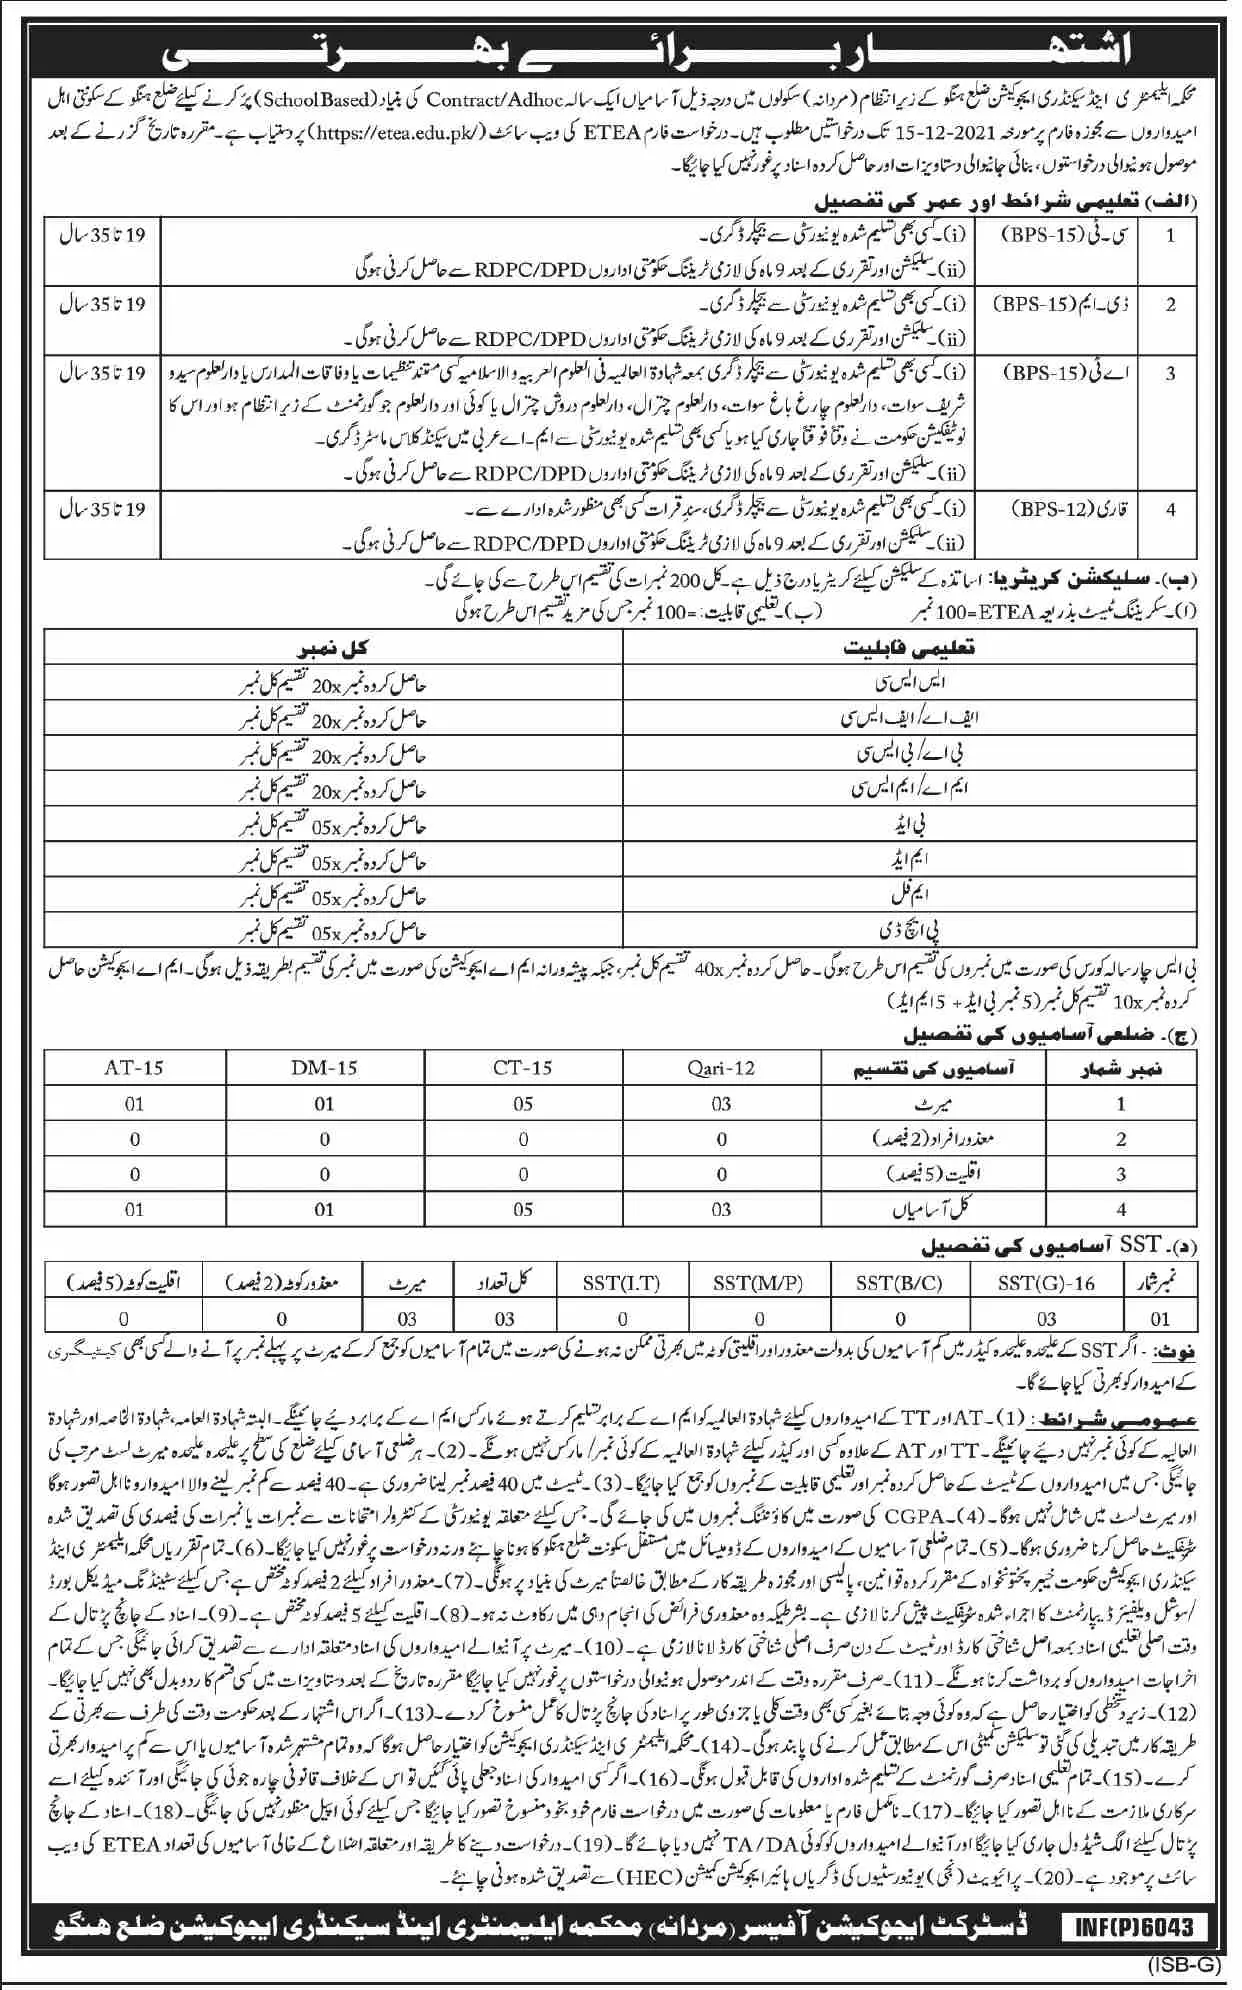 اشتہار برائے بھرتی
محکمہ ایلیمنٹری اینڈ سیکنڈری ایجوکیشن ضلع ہنگو کے زیر انتظام (مردانہ) سکولوں میں درجہ ذیل آسامیاں ایک سالہ Contract/Adhoc کی بنیاد (School Based) پر کرنے کیلئے ضلع ہنگو کے سکونتی اہل
امیدواروں سے مجوزہ فارم پر مورخہ 15-12-2021 تک درخواستیں مطلوب ہیں۔ درخواست فارم ETEA کی ویب سائٹ (https://etea.edu.pk/) پر دستیاب ہے۔ مقررہ تاریخ گزرنے کے بعد
موصول ہونیوالی درخواستوں، بنائی جانیوالی دستاویزات اور حاصل کردہ اسناد پر غور نہیں کیا جائیگا۔
(الف) تعلیمی شرائط اور عمر کی تفصیل
1 سی۔ٹی (BPS-15) (i)۔ کسی بھی تسلیم شدہ یونیورسٹی سے بیچلر ڈگری۔ 19 تا 35 سال
(ii)۔ سلیکشن اور تقرری کے بعد 9 ماہ کی لازمی ٹریننگ حکومتی اداروں RDPC/DPD سے حاصل کرنی ہوگی
2 ڈی۔ایم (BPS-15) (i)۔ کسی بھی تسلیم شدہ یونیورسٹی سے بیچلر ڈگری۔ 19 تا 35 سال
(ii)۔ سلیکشن اور تقرری کے بعد 9 ماہ کی لازمی ٹریننگ حکومتی اداروں RDPC/DPD سے حاصل کرنی ہوگی۔
3 اے ٹی (BPS-15) (i)۔ کسی بھی تسلیم شدہ یونیورسٹی سے بیچلر ڈگری بمعہ شہادۃ العالمیہ فی العلوم العربیہ والاسلامیہ کسی مستند تنظیمات یا وفاقات المدارس یا دارلعلوم سیدو 19 تا 35 سال
شریف سوات، دارلعلوم چارغ باغ سوات، دارلعلوم چترال، دارلعلوم دروش چترال یا کوئی اور دارلعلوم جو گورنمنٹ کے زیر انتظام ہو اور اس کا
نوٹیفکیشن حکومت نے وقتاً فوقتاً جاری کیا ہو یا کسی بھی تسلیم شدہ یونیورسٹی سے ایم۔اے عربی میں سیکنڈ کلاس ماسٹر ڈگری۔
(ii)۔ سلیکشن اور تقرری کے بعد 9 ماہ کی لازمی ٹریننگ حکومتی اداروں RDPC/DPD سے حاصل کرنی ہوگی۔
4 قاری (BPS-12) (i)۔ کسی بھی تسلیم شدہ یونیورسٹی سے بیچلر ڈگری، سند قرات کسی بھی منظور شدہ ادارے سے۔ 19 تا 35 سال
(ii)۔ سلیکشن اور تقرری کے بعد 9 ماہ کی لازمی ٹریننگ حکومتی اداروں RDPC/DPD سے حاصل کرنی ہوگی۔
(ب)۔ سلیکشن کریٹریا: اساتذہ کے سلیکشن کیلئے کریٹریا درج ذیل ہے۔ کل 200 نمبرات کی تقسیم اس طرح سے کی جائے گی۔
(ا)۔ سکریننگ ٹیسٹ بذریعہ ETEA=100 نمبر (ب)۔ تعلیمی قابلیت: =100 نمبر جس کی مزید تقسیم اس طرح ہوگی
تعلیمی قابلیت کل نمبر
ایس ایس سی حاصل کردہ نمبر 20x تقسیم کل نمبر
ایف اے/ایف ایس سی حاصل کردہ نمبر 20x تقسیم کل نمبر
بی اے/بی ایس سی حاصل کردہ نمبر 20x تقسیم کل نمبر
ایم اے/ایم ایس سی حاصل کردہ نمبر 20x تقسیم کل نمبر
بی ایڈ حاصل کردہ نمبر 05x تقسیم کل نمبر
ایم ایڈ حاصل کردہ نمبر 05x تقسیم کل نمبر
ایم فل حاصل کردہ نمبر 05x تقسیم کل نمبر
پی ایچ ڈی حاصل کردہ نمبر 05x تقسیم کل نمبر
بی ایس چار سالہ کورس کی صورت میں نمبروں کی تقسیم اس طرح ہوگی۔ حاصل کردہ نمبر 40x تقسیم کل نمبر، جبکہ پیشہ ورانہ ایم اے ایجوکیشن کی صورت میں نمبر کی تقسیم بطریقہ ذیل ہوگی۔ ایم اے ایجوکیشن حاصل
کردہ نمبر 10x تقسیم کل نمبر (5 نمبر بی ایڈ + 5 ایم ایڈ)
(ج)۔ ضلعی آسامیوں کی تفصیل
نمبر شمار آسامیوں کی تقسیم Qari-12 CT-15 DM-15 AT-15
1 میرٹ 03 05 01 01
2 معذور افراد (2 فیصد) 0 0 0 0
3 اقلیت (5 فیصد) 0 0 0 0
4 کل آسامیاں 03 05 01 01
(د)۔ SST آسامیوں کی تفصیل
نمبر شمار SST(G)-16 SST(B/C) SST(M/P) SST(I.T) کل تعداد میرٹ معذور کوٹہ (2 فیصد) اقلیت کوٹہ (5 فیصد)
01 03 0 0 0 03 03 0 0
نوٹ:- اگر SST کے علیحدہ علیحدہ کیڈر میں کم آسامیوں کی بدولت معذور اور اقلیتی کوٹہ میں بھرتی ممکن نہ ہونے کی صورت میں تمام آسامیوں کو جمع کر کے میرٹ پر پہلے نمبر پر آنے والے کسی بھی کیٹیگری
کے امیدوار کو بھرتی کیا جائے گا۔
عمومی شرائط: (1)۔ AT اور TT کے امیدواروں کیلئے شہادۃ العالمیہ کو ایم اے کے برابر تسلیم کرتے ہوئے مارکس ایم اے کے برابر دیئے جائینگے۔ البتہ شہادۃ العامہ، شہادۃ الخاصہ اور شہادۃ
العالیہ کے کوئی نمبر نہیں دیئے جائینگے۔ TT اور AT کے علاوہ کسی اور کیڈر کیلئے شہادۃ العالمیہ کے کوئی نمبر/مارکس نہیں ہونگے۔ (2)۔ ہر ضلعی آسامی کیلئے ضلع کی سطح پر علیحدہ علیحدہ میرٹ لسٹ مرتب کی
جائیگی جس میں امیدواروں کے ٹیسٹ کے حاصل کردہ نمبر اور تعلیمی قابلیت کے نمبروں کو جمع کیا جائیگا۔ (3)۔ ٹیسٹ میں 40 فیصد نمبر لینا ضروری ہے۔ 40 فیصد سے کم نمبر لینے والا امیدوار نااہل تصور ہوگا
اور میرٹ لسٹ میں شامل نہیں ہوگا۔ (4)۔ CGPA کی صورت میں کاؤنٹنگ نمبروں میں کی جائے گی۔ جس کیلئے متعلقہ یونیورسٹی کے کنٹرولر امتحانات سے نمبرات یا نمبرات کی فیصدی کی تصدیق شدہ
سرٹیفکیٹ حاصل کرنا ضروری ہوگا۔ (5)۔ تمام ضلعی آسامیوں کے امیدواروں کے ڈومیسائل میں مستقل سکونت ضلع ہنگو کا ہونا چاہئے ورنہ درخواست پر غور نہیں کیا جائیگا۔ (6)۔ تمام تقرریاں محکمہ ایلیمنٹری اینڈ
سیکنڈری ایجوکیشن حکومت خیبر پختونخواہ کے مقرر کردہ قوانین، پالیسی اور مجوزہ طریقہ کار کے مطابق خالصتاً میرٹ کی بنیاد پر ہونگی۔ (7)۔ معذور افراد کیلئے 2 فیصد کوٹہ مختص ہے جس کیلئے سٹینڈنگ میڈیکل بورڈ
/سوشل ویلفیئر ڈیپارٹمنٹ کا اجراء شدہ سرٹیفکیٹ پیش کرنا لازمی ہے۔ بشرطیکہ وہ معذوری فرائض کی انجام دہی میں رکاوٹ نہ ہو۔ (8)۔ اقلیت کیلئے 5 فیصد کوٹہ مختص ہے۔ (9)۔ اسناد کے جانچ پڑتال کے
وقت اصلی تعلیمی اسناد بمعہ اصل شناختی کارڈ اور ٹیسٹ کے دن صرف اصلی شناختی کارڈ لانا لازمی ہے۔ (10)۔ میرٹ پر آنیوالے امیدواروں کی اسناد متعلقہ ادارے سے تصدیق کرائی جائیگی جس کے تمام
اخراجات امیدواروں کو برداشت کرنا ہونگے۔ (11)۔ صرف مقررہ وقت کے اندر موصول ہونیوالی درخواستوں پر غور نہیں کیا جائیگا مقررہ تاریخ کے بعد دستاویزات میں کسی قسم کا ردوبدل بھی نہیں کیا جائیگا۔
(12)۔ زیر دستخطی کو اختیار حاصل ہے کہ وہ کوئی وجہ بتائے بغیر کسی بھی وقت کلی یا جزوی طور پر اسناد کی جانچ پڑتال کا عمل منسوخ کر دے۔ (13)۔ اگر اس اشتہار کے بعد حکومت وقت کی طرف سے بھرتی کے
طریقہ کار میں تبدیلی کی گئی تو سلیکشن کمیٹی اس کے مطابق عمل کرنے کی پابند ہوگی۔ (14)۔ محکمہ ایلیمنٹری اینڈ سیکنڈری ایجوکیشن کو اختیار حاصل ہوگا کہ وہ تمام مشتہر شدہ آسامیوں یا اس سے کم پر امیدوار بھرتی
کرے۔ (15)۔ تمام تعلیمی اسناد صرف گورنمنٹ کے تسلیم شدہ اداروں کی قابل قبول ہونگی۔ (16)۔ اگر کسی امیدوار کی اسناد جعلی پائی گئیں تو اس کے خلاف قانونی چارہ جوئی کی جائیگی اور آئندہ کیلئے اسے
سرکاری ملازمت کے نااہل تصور کیا جائیگا۔ (17)۔ نامکمل فارم یا معلومات کی صورت میں درخواست فارم خودبخود منسوخ تصور کیا جائیگا جس کیلئے کوئی اپیل منظور نہیں کی جائیگی۔ (18)۔ اسناد کے جانچ
پڑتال کیلئے الگ شیڈول جاری کیا جائیگا اور آنیوالے امیدواروں کو کوئی TA/DA نہیں دیا جائے گا۔ (19)۔ درخواست دینے کا طریقہ اور متعلقہ اضلاع کے خالی آسامیوں کی تعداد ETEA کی ویب
سائٹ پر موجود ہے۔ (20)۔ پرائیویٹ (نجی) یونیورسٹیوں کی ڈگریاں ہائیر ایجوکیشن کمیشن (HEC) سے تصدیق شدہ ہونی چاہئے۔
ڈسٹرکٹ ایجوکیشن آفیسر (مردانہ) محکمہ ایلیمنٹری اینڈ سیکنڈری ایجوکیشن ضلع ہنگو INF(P)6043
(ISB-G)